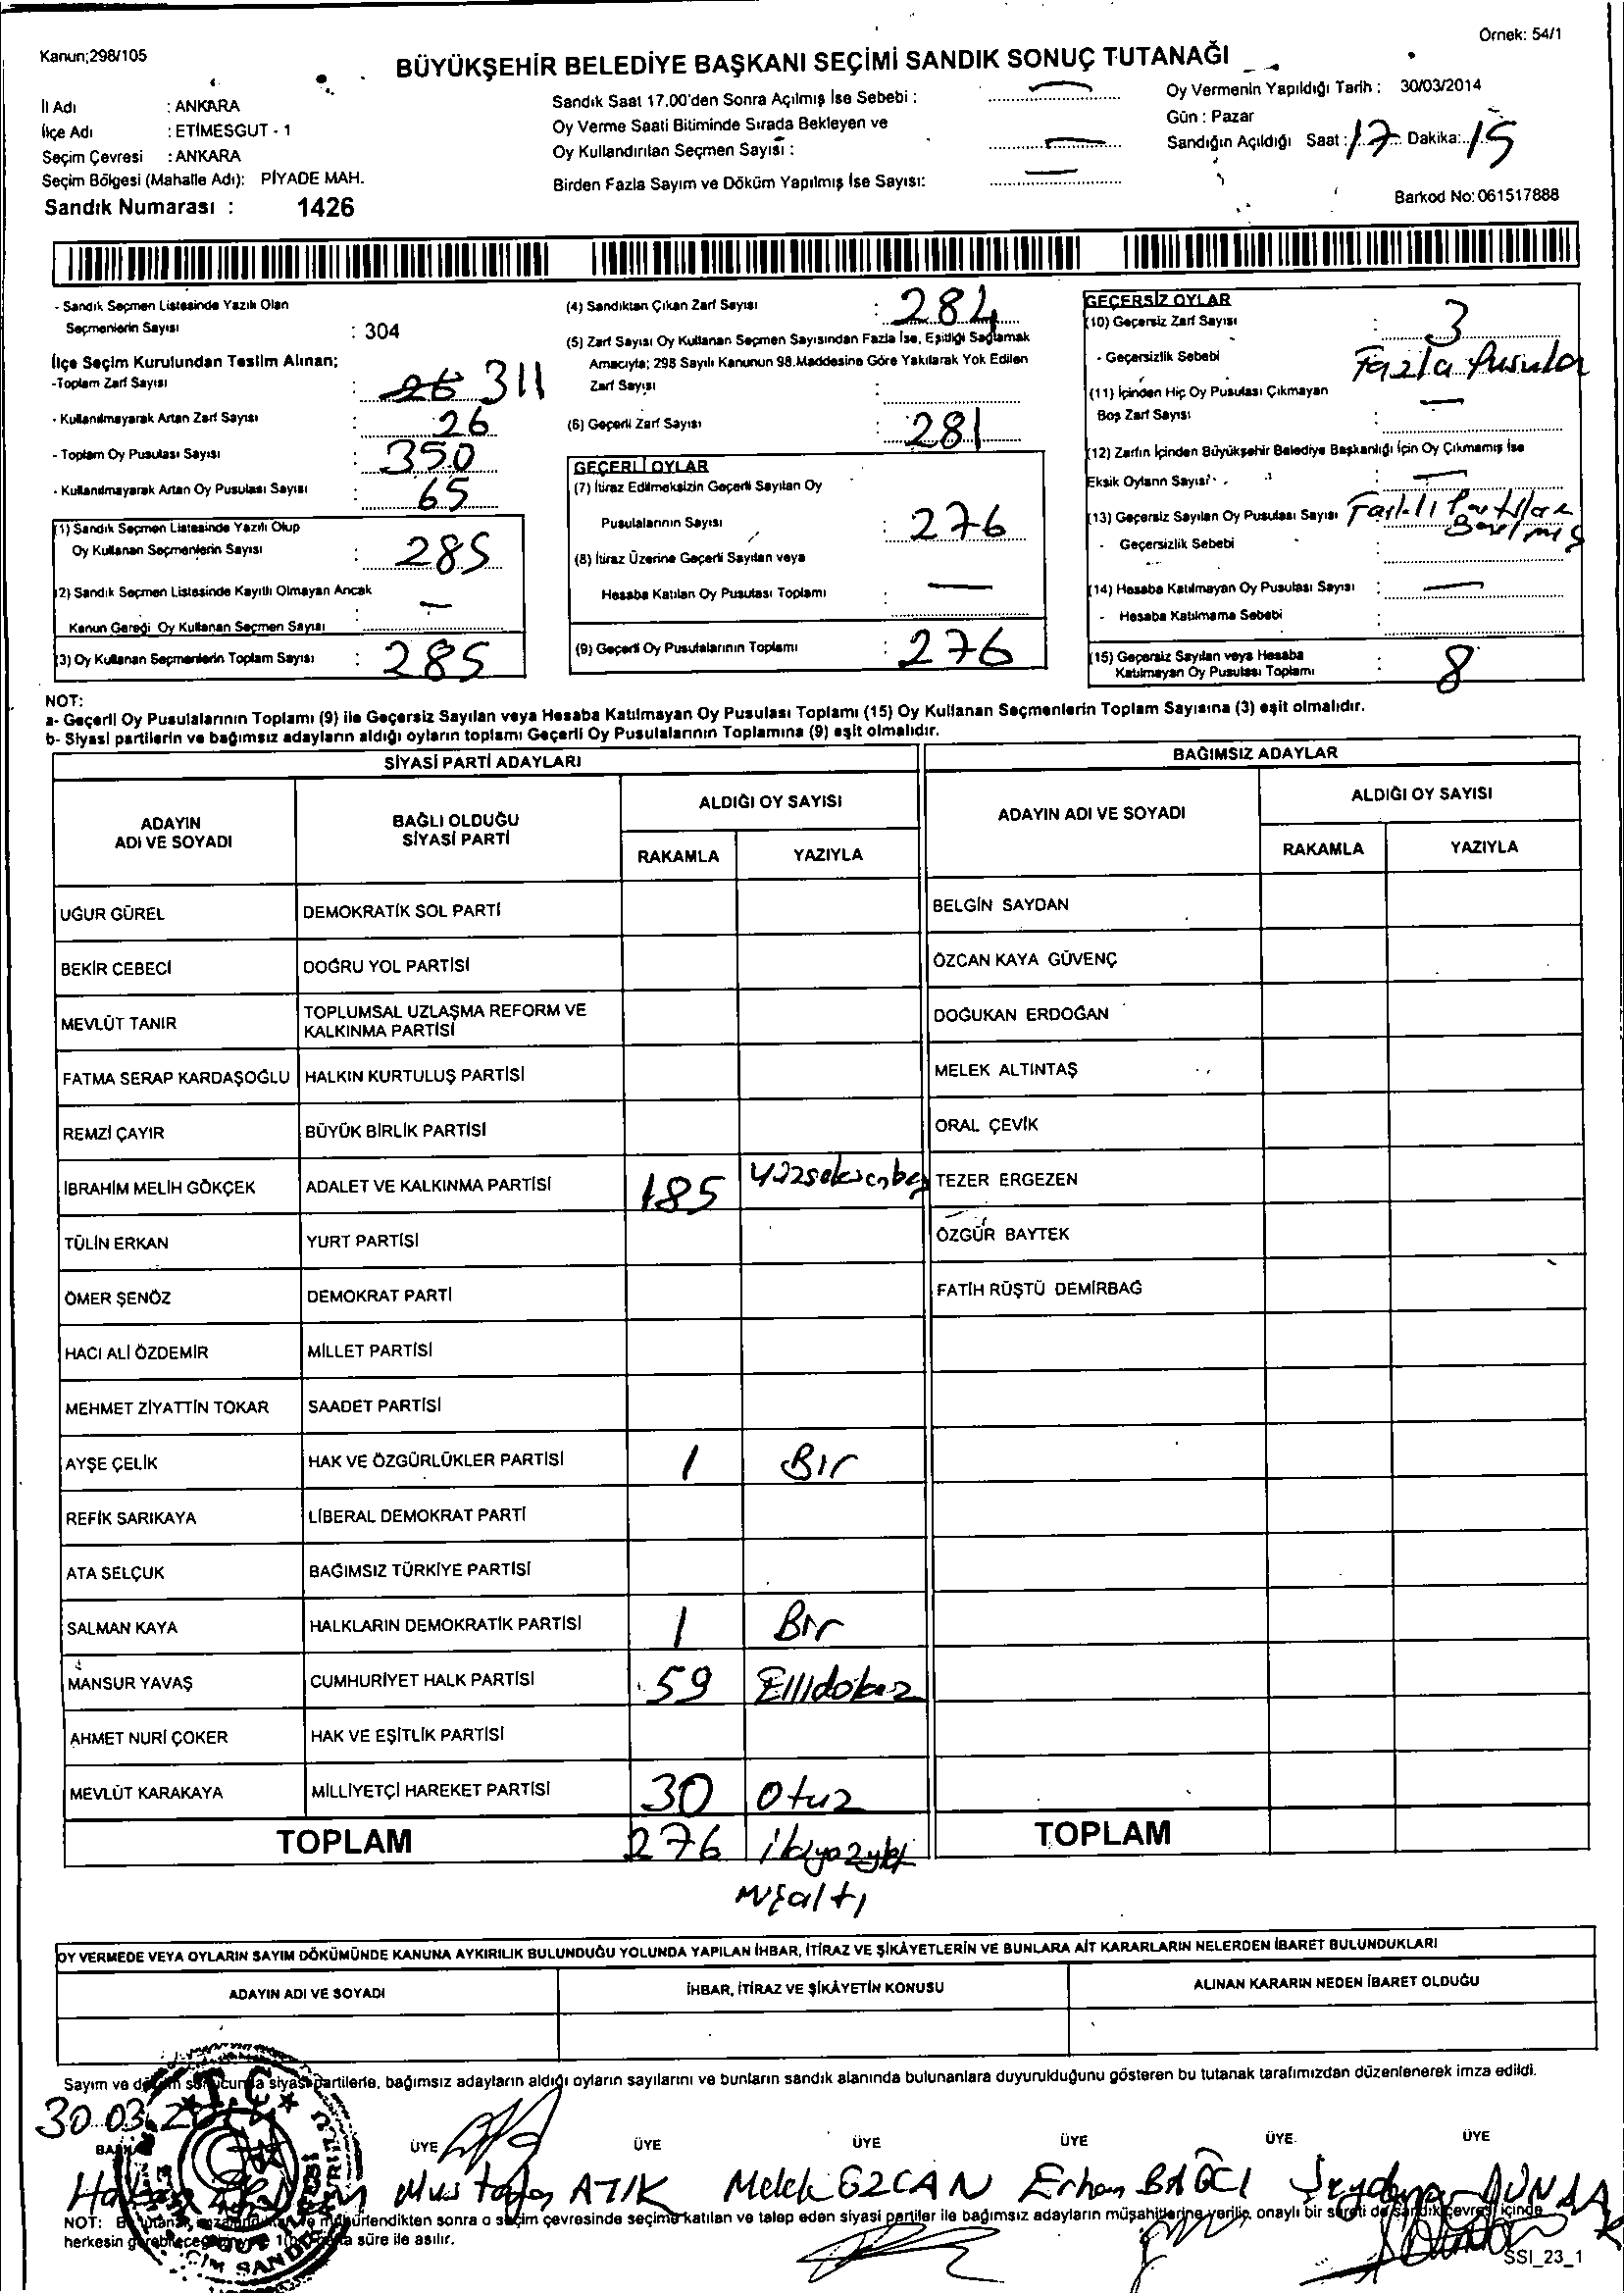 Kanun;298/105
Örnek: 54/1
BÜYÜKŞEHİR BELEDİYE BAŞKANI SEÇİMİ SANDIK SONUÇ TUTANAĞI
İl Adı : ANKARA
İlçe Adı : ETİMESGUT - 1
Seçim Çevresi : ANKARA
Seçim Bölgesi (Mahalle Adı): PİYADE MAH.
Sandık Numarası : 1426
Sandık Saat 17.00'den Sonra Açılmış İse Sebebi :
Oy Verme Saati Bitiminde Sırada Bekleyen ve
Oy Kullandırılan Seçmen Sayısı :
Birden Fazla Sayım ve Döküm Yapılmış İse Sayısı:
Oy Vermenin Yapıldığı Tarih : 30/03/2014
Gün : Pazar
Sandığın Açıldığı Saat : 17 Dakika: 15
Barkod No: 061517888
- Sandık Seçmen Listesinde Yazılı Olan
Seçmenlerin Sayısı : 304
İlçe Seçim Kurulundan Teslim Alınan;
-Toplam Zarf Sayısı : 311
- Kullanılmayarak Artan Zarf Sayısı : 26
- Toplam Oy Pusulası Sayısı : 350
- Kullanılmayarak Artan Oy Pusulası Sayısı : 65
(1) Sandık Seçmen Listesinde Yazılı Olup
Oy Kullanan Seçmenlerin Sayısı : 285
(2) Sandık Seçmen Listesinde Kayıtlı Olmayan Ancak
Kanun Gereği Oy Kullanan Seçmen Sayısı : -
(3) Oy Kullanan Seçmenlerin Toplam Sayısı : 285
(4) Sandıktan Çıkan Zarf Sayısı : 284
(5) Zarf Sayısı Oy Kullanan Seçmen Sayısından Fazla İse, Eşitliği Sağlamak
Amacıyla; 298 Sayılı Kanunun 98.Maddesine Göre Yakılarak Yok Edilen
Zarf Sayısı :
(6) Geçerli Zarf Sayısı : 281
GEÇERLİ OYLAR
(7) İtiraz Edilmeksizin Geçerli Sayılan Oy
Pusulalarının Sayısı : 276
(8) İtiraz Üzerine Geçerli Sayılan veya
Hesaba Katılan Oy Pusulası Toplamı : -
(9) Geçerli Oy Pusulalarının Toplamı : 276
GEÇERSİZ OYLAR
(10) Geçersiz Zarf Sayısı : 3
- Geçersizlik Sebebi Fazla Pusula
(11) İçinden Hiç Oy Pusulası Çıkmayan
Boş Zarf Sayısı : -
(12) Zarfın İçinden Büyükşehir Belediye Başkanlığı İçin Oy Çıkmamış İse
Eksik Oyların Sayısı : -
(13) Geçersiz Sayılan Oy Pusulası Sayısı
- Geçersizlik Sebebi :
(14) Hesaba Katılmayan Oy Pusulası Sayısı : -
- Hesaba Katılmama Sebebi :
(15) Geçersiz Sayılan veya Hesaba
Katılmayan Oy Pusulası Toplamı : 8
NOT:
a- Geçerli Oy Pusulalarının Toplamı (9) ile Geçersiz Sayılan veya Hesaba Katılmayan Oy Pusulası Toplamı (15) Oy Kullanan Seçmenlerin Toplam Sayısına (3) eşit olmalıdır.
b- Siyasi partilerin ve bağımsız adayların aldığı oyların toplamı Geçerli Oy Pusulalarının Toplamına (9) eşit olmalıdır.
SİYASİ PARTİ ADAYLARI
ADAYIN ADI VE SOYADI
BAĞLI OLDUĞU SİYASİ PARTİ
ALDIĞI OY SAYISI
RAKAMLA YAZIYLA
UĞUR GÜREL DEMOKRATİK SOL PARTİ
BEKİR CEBECİ DOĞRU YOL PARTİSİ
MEVLÜT TANIR TOPLUMSAL UZLAŞMA REFORM VE
KALKINMA PARTİSİ
FATMA SERAP KARDAŞOĞLU HALKIN KURTULUŞ PARTİSİ
REMZİ ÇAYIR BÜYÜK BİRLİK PARTİSİ
İBRAHİM MELİH GÖKÇEK ADALET VE KALKINMA PARTİSİ 185 Yüzseksenbeş
TÜLİN ERKAN YURT PARTİSİ
ÖMER ŞENÖZ DEMOKRAT PARTİ
HACI ALİ ÖZDEMİR MİLLET PARTİSİ
MEHMET ZİYATTİN TOKAR SAADET PARTİSİ
AYŞE ÇELİK HAK VE ÖZGÜRLÜKLER PARTİSİ 1 Bir
REFİK SARIKAYA LİBERAL DEMOKRAT PARTİ
ATA SELÇUK BAĞIMSIZ TÜRKİYE PARTİSİ
SALMAN KAYA HALKLARIN DEMOKRATİK PARTİSİ 1 Bir
MANSUR YAVAŞ CUMHURİYET HALK PARTİSİ 59 Ellidokuz
AHMET NURİ ÇOKER HAK VE EŞİTLİK PARTİSİ
MEVLÜT KARAKAYA MİLLİYETÇİ HAREKET PARTİSİ 30 Otuz
TOPLAM 276
BAĞIMSIZ ADAYLAR
ADAYIN ADI VE SOYADI
ALDIĞI OY SAYISI
RAKAMLA YAZIYLA
BELGİN SAYDAN
ÖZCAN KAYA GÜVENÇ
DOĞUKAN ERDOĞAN
MELEK ALTINTAŞ
ORAL ÇEVİK
TEZER ERGEZEN
ÖZGÜR BAYTEK
FATİH RÜŞTÜ DEMİRBAĞ
TOPLAM
OY VERMEDE VEYA OYLARIN SAYIM DÖKÜMÜNDE KANUNA AYKIRILIK BULUNDUĞU YOLUNDA YAPILAN İHBAR, İTİRAZ VE ŞİKÂYETLERİN VE BUNLARA AİT KARARLARIN NELERDEN İBARET BULUNDUKLARI
ADAYIN ADI VE SOYADI İHBAR, İTİRAZ VE ŞİKÂYETİN KONUSU ALINAN KARARIN NEDEN İBARET OLDUĞU
Sayım ve döküm sonucunda siyasi partilerle, bağımsız adayların aldığı oyların sayılarını ve bunların sandık alanında bulunanlara duyurulduğunu gösteren bu tutanak tarafımızdan düzenlenerek imza edildi.
30.03.
ÜYE ÜYE ÜYE ÜYE ÜYE ÜYE
Mustafa ATIK Melek ÖZCAN Erhan BAĞCI
NOT: sonra o seçim çevresinde seçime katılan ve talep eden siyasi partiler ile bağımsız adayların müşahitlerine verilip, onaylı bir sureti de sandık çevresi içinde
herkesin süre ile asılır.
SSI_23_1